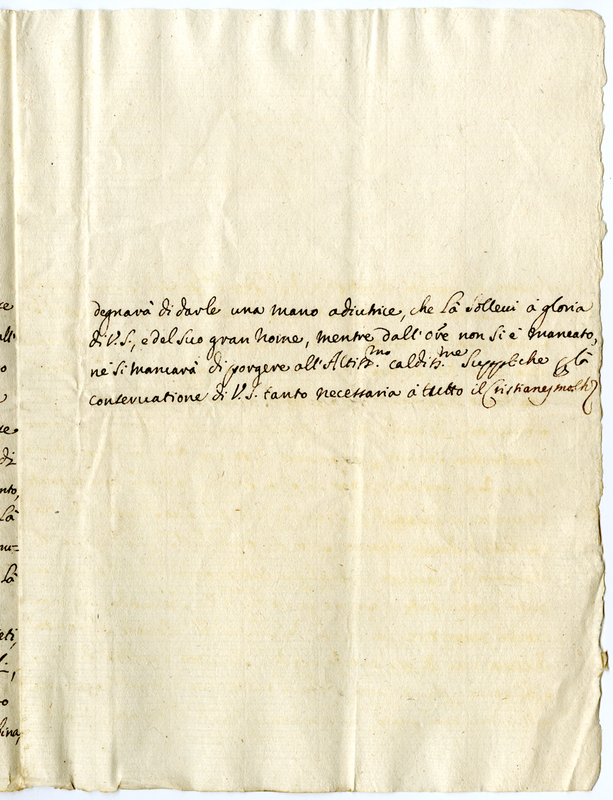 degnarà di darle una mano adiutrice, che là sollevi à gloria
di V.S., e del suo gran Nome, mentre dall'Ore non si è mancato,
nè si mancarà di porgere all'Altiss.mo caldiss.me Suppliche là
conservatione di V.S. tanto necessaria à tutto il